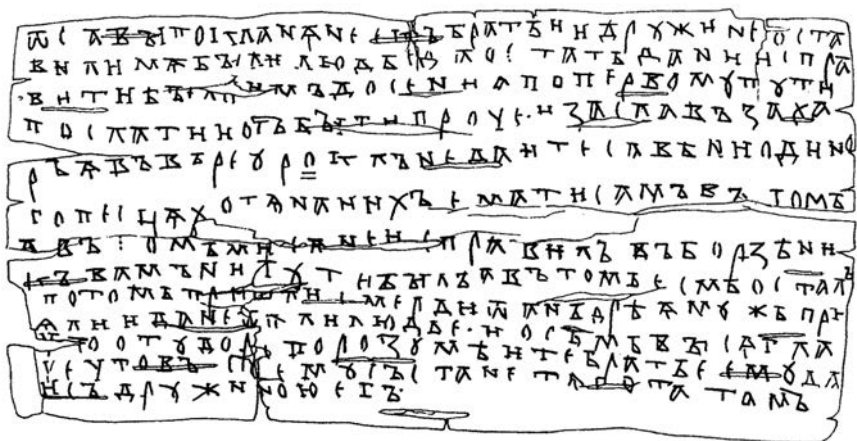 ѿ савы покланѧнее къ братьи и дружине оста
вили мѧ были людье да остать дани испра
вити было имъ досени а по первому пути
послати и отъбыти проче и заславъ заха
рьѧ въ вѣре уроклъ не даите савѣ ни одино
го песцѧ хотѧ на нихъ емати самъ въ томь
а въ томь ми сѧ не исправилъ въ борзѣ ни
къ вамъ ни ту ти былъ а въ томь есмь осталъ
по томь пришли смерди ѿ андрѣѧ мужь при
ѧли и дане ѿѧли людье и осьмь высѧгла
что о тудо порозумѣите братье ему да
че что въ ему състане тѧгота тамъ
и съ дружиною егъ